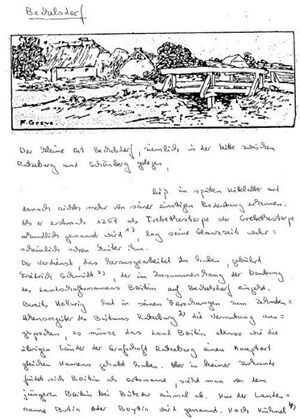 Bechelsdorf
F. Greve.
Der kleine Ort Bechelsdorf, ziemlich in der Mitte zwischen
Ratzeburg und Schönberg gelegen,
ließ im späten Mittelalter und
danach nichts mehr von seiner einstigen Bedeutung erkennen.
Als er erstmals genannt wird, lag seine Glanzzeit wahr-
scheinlich schon hinter ihm.
Das Verdienst, das herausgearbeitet zu haben, gebührt
, der im Zusammenhang der Deutung
des Landschaftsnamens Boitin auf Bechelsdorf eingeht.
Bereits Hellwig hat in seinen Forschungen zum Zehnten-
register des Bistums Ratzeburg die Vermutung aus-
gesprochen, es müsse das Land Boitin ebenso wie die
übrigen Länder der Grafschaft Ratzeburg einen Hauptort
gleichen Namens gehabt haben. Aber in keiner Urkunde
findet sich Boitin als Ortsname, sieht man von dem
jüngeren Boitin bei Bützow einmal ab. Nur der Landes-
name Butin oder Boytin wird genannt. Nach